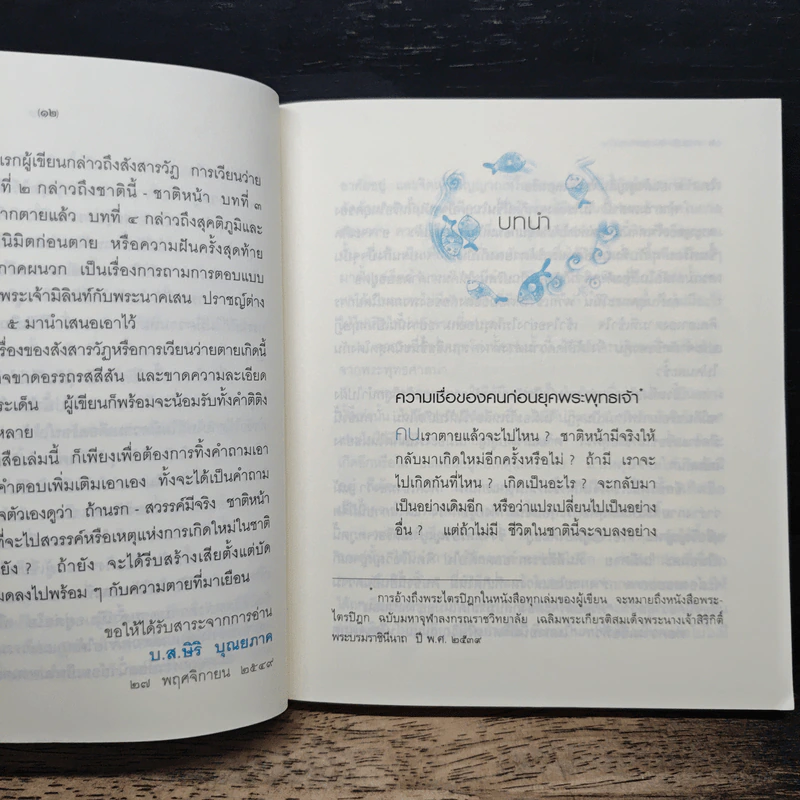 (๑๒)
เรกผู้เขียนกล่าวถึงสังสารวัฏ การเวียนว่าย
ที่ ๒ กล่าวถึงชาตินี้ - ชาติหน้า บทที่ ๓
ากตายแล้ว บทที่ ๔ กล่าวถึงสุคติภูมิและ
นิมิตก่อนตาย หรือความฝันครั้งสุดท้าย
าคผนวก เป็นเรื่องการถามการตอบแบบ
พระเจ้ามิลินท์กับพระนาคเสน ปราชญ์ต่าง
๕ มานำเสนอเอาไว้
รื่องของสังสารวัฏหรือการเวียนว่ายตายเกิดนี้
าจขาดอรรถรสสีสัน และขาดความละเอียด
ระเด็น ผู้เขียนก็พร้อมจะน้อมรับทั้งคำติติง
หลาย
สือเล่มนี้ ก็เพียงเพื่อต้องการทิ้งคำถามเอา
คำตอบเพิ่มเติมเอาเอง ทั้งจะได้เป็นคำถาม
จตัวเองดูว่า ถ้านรก - สวรรค์มีจริง ชาติหน้า
ที่จะไปสวรรค์หรือเหตุแห่งการเกิดใหม่ในชาติ
ยัง ? ถ้ายัง จะได้รีบสร้างเสียตั้งแต่บัด
มดลงไปพร้อม ๆ กับความตายที่มาเยือน
ขอให้ได้รับสาระจากการอ่าน
บ.ส.ษิริ บุณยภาค
๒๗ พฤศจิกายน ๒๕๔๙
บทนำ
ความเชื่อของคนก่อนยุคพระพุทธเจ้า*
คนเราตายแล้วจะไปไหน ? ชาติหน้ามีจริงให้
กลับมาเกิดใหม่อีกครั้งหรือไม่ ? ถ้ามี เราจะ
ไปเกิดกันที่ไหน ? เกิดเป็นอะไร ? จะกลับมา
เป็นอย่างเดิมอีก หรือว่าแปรเปลี่ยนไปเป็นอย่าง
อื่น ? แต่ถ้าไม่มี ชีวิตในชาตินี้จะจบลงอย่าง
* การอ้างถึงพระไตรปิฎกในหนังสือทุกเล่มของผู้เขียน จะหมายถึงหนังสือพระ-
ไตรปิฎก ฉบับมหาจุฬาลงกรณราชวิทยาลัย เฉลิมพระเกียรติสมเด็จพระนางเจ้าสิริกิติ์
พระบรมราชินีนาถ ปี พ.ศ. ๒๕๓๙